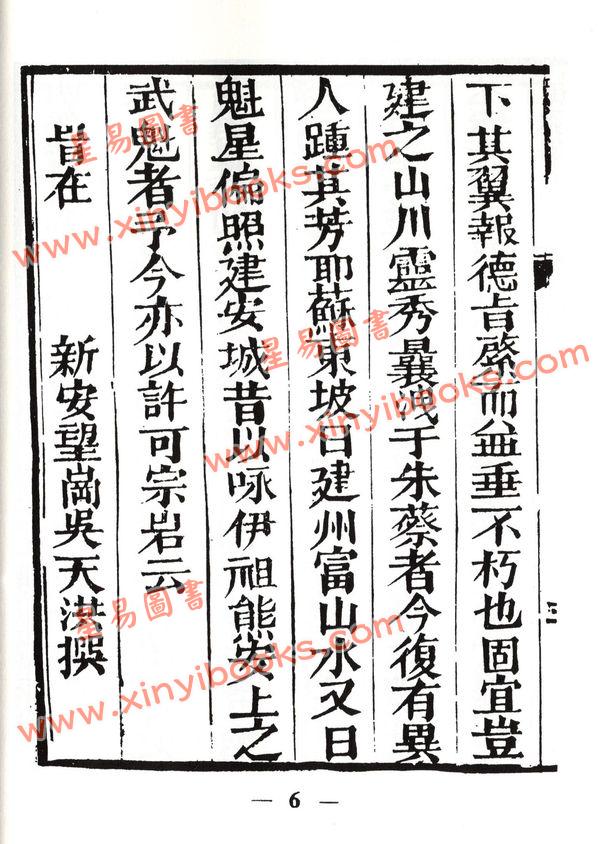 下其翼報德旨縈而益垂不朽也固宜豈
建之山川靈秀曩洩于朱蔡者今復有異
人踵其芳耶蘇東坡曰建州富山水又曰
魁星偏照建安城昔以咏伊祖熊安上之
武魁者予今亦以許可宗岩云
皆在
新安望崗吳天洪撰
星易圖書
www.xinyibooks.com
星易圖書
www.xinyibooks.com
星易圖書
www.xinyibooks.com
— 6 —